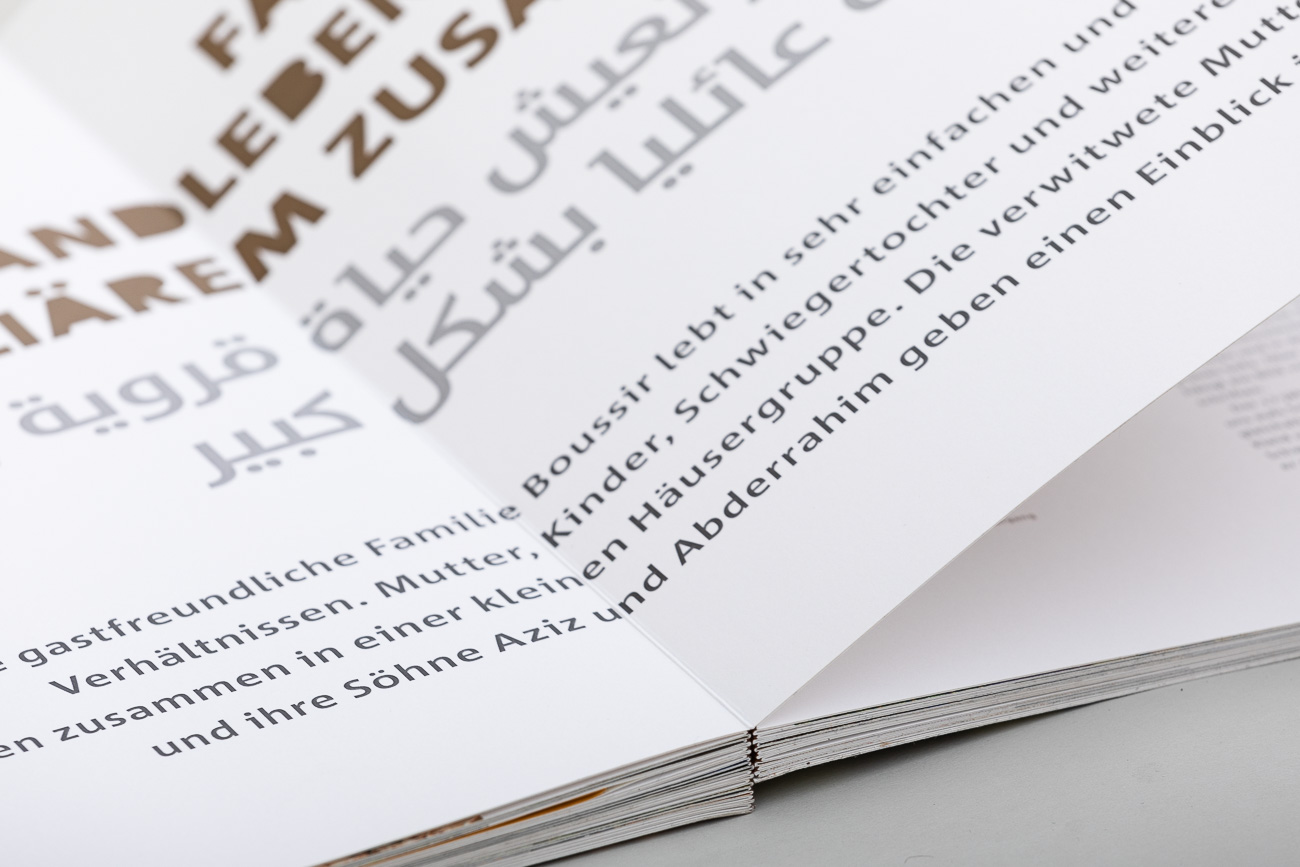 FA
ANDLEBEN
IÄREM ZUSA
لعيش حياة قروية
عائليا بشكل كبير
e gastfreundliche Familie Boussir lebt in sehr einfachen und
Verhältnissen. Mutter, Kinder, Schwiegertochter und weitere
en zusammen in einer kleinen Häusergruppe. Die verwitwete Mutt
und ihre Söhne Aziz und Abderrahim geben einen Einblick i